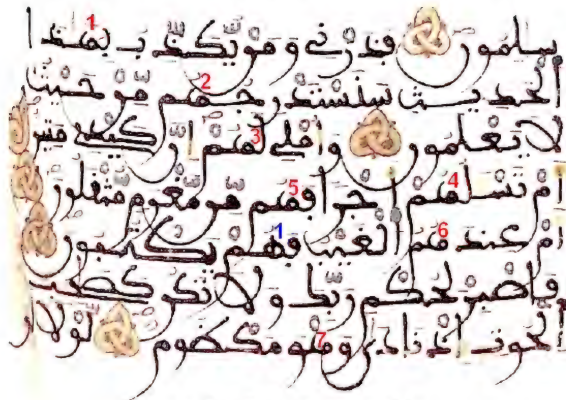 سلمون فذرني ومن يكذب بهذا 1 ا
لحديث سنستدرجهم 2 من حيث
لا يعلمون واملي لهم 3 ان كيدي متين
ام تسلهم 4 اجرا فهم 5 من مغرم مثقلون
ام عندهم 6 الغيب فهم 1 يكتبون
فاصبر لحكم ربك ولا تكن كصحب
الحوت اذ نادى وهو 7 مكظوم لولا ان